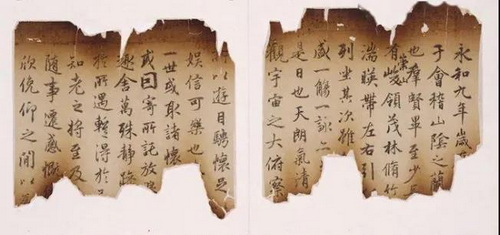 永和九年歲
于會稽山陰之蘭
也羣賢畢至少
有崇峻領茂林脩竹
湍暎帶左右引
列坐其次雖
盛一觴一詠
是日也天朗氣清
觀宇宙之大俯察
以遊目騁懷足
娛信可樂也
一世或取諸懷
或因寄所託放
趣舍萬殊靜躁
於所遇暫得於
知老之將至及
隨事遷感慨
欣俛仰之閒以